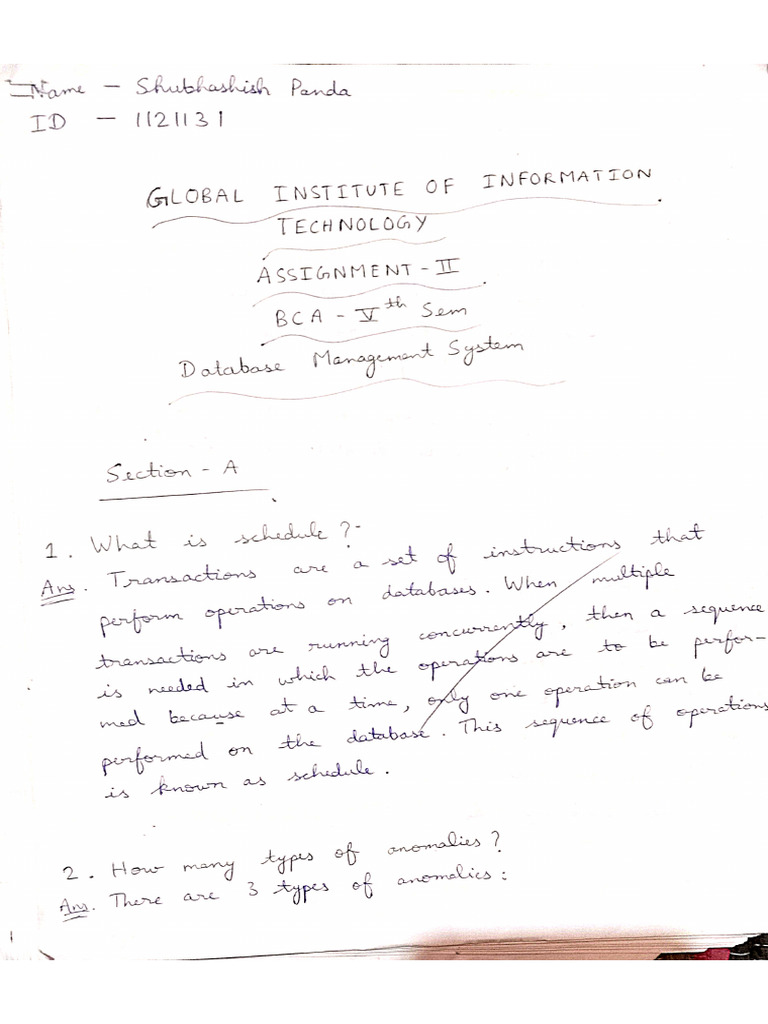 Name - Shubhashish Panda
ID - 1121131
GLOBAL INSTITUTE OF INFORMATION
TECHNOLOGY
ASSIGNMENT - II
BCA - Vth Sem
Database Management System
Section - A
1. What is schedule?-
Ans. Transactions are a set of instructions that
perform operations on databases. When multiple
transactions are running concurrently, then a sequence
is needed in which the operations are to be perfor-
med because at a time, only one operation can be
performed on the database. This sequence of operations
is known as schedule.
2. How many types of anomalies?
Ans. There are 3 types of anomalies: